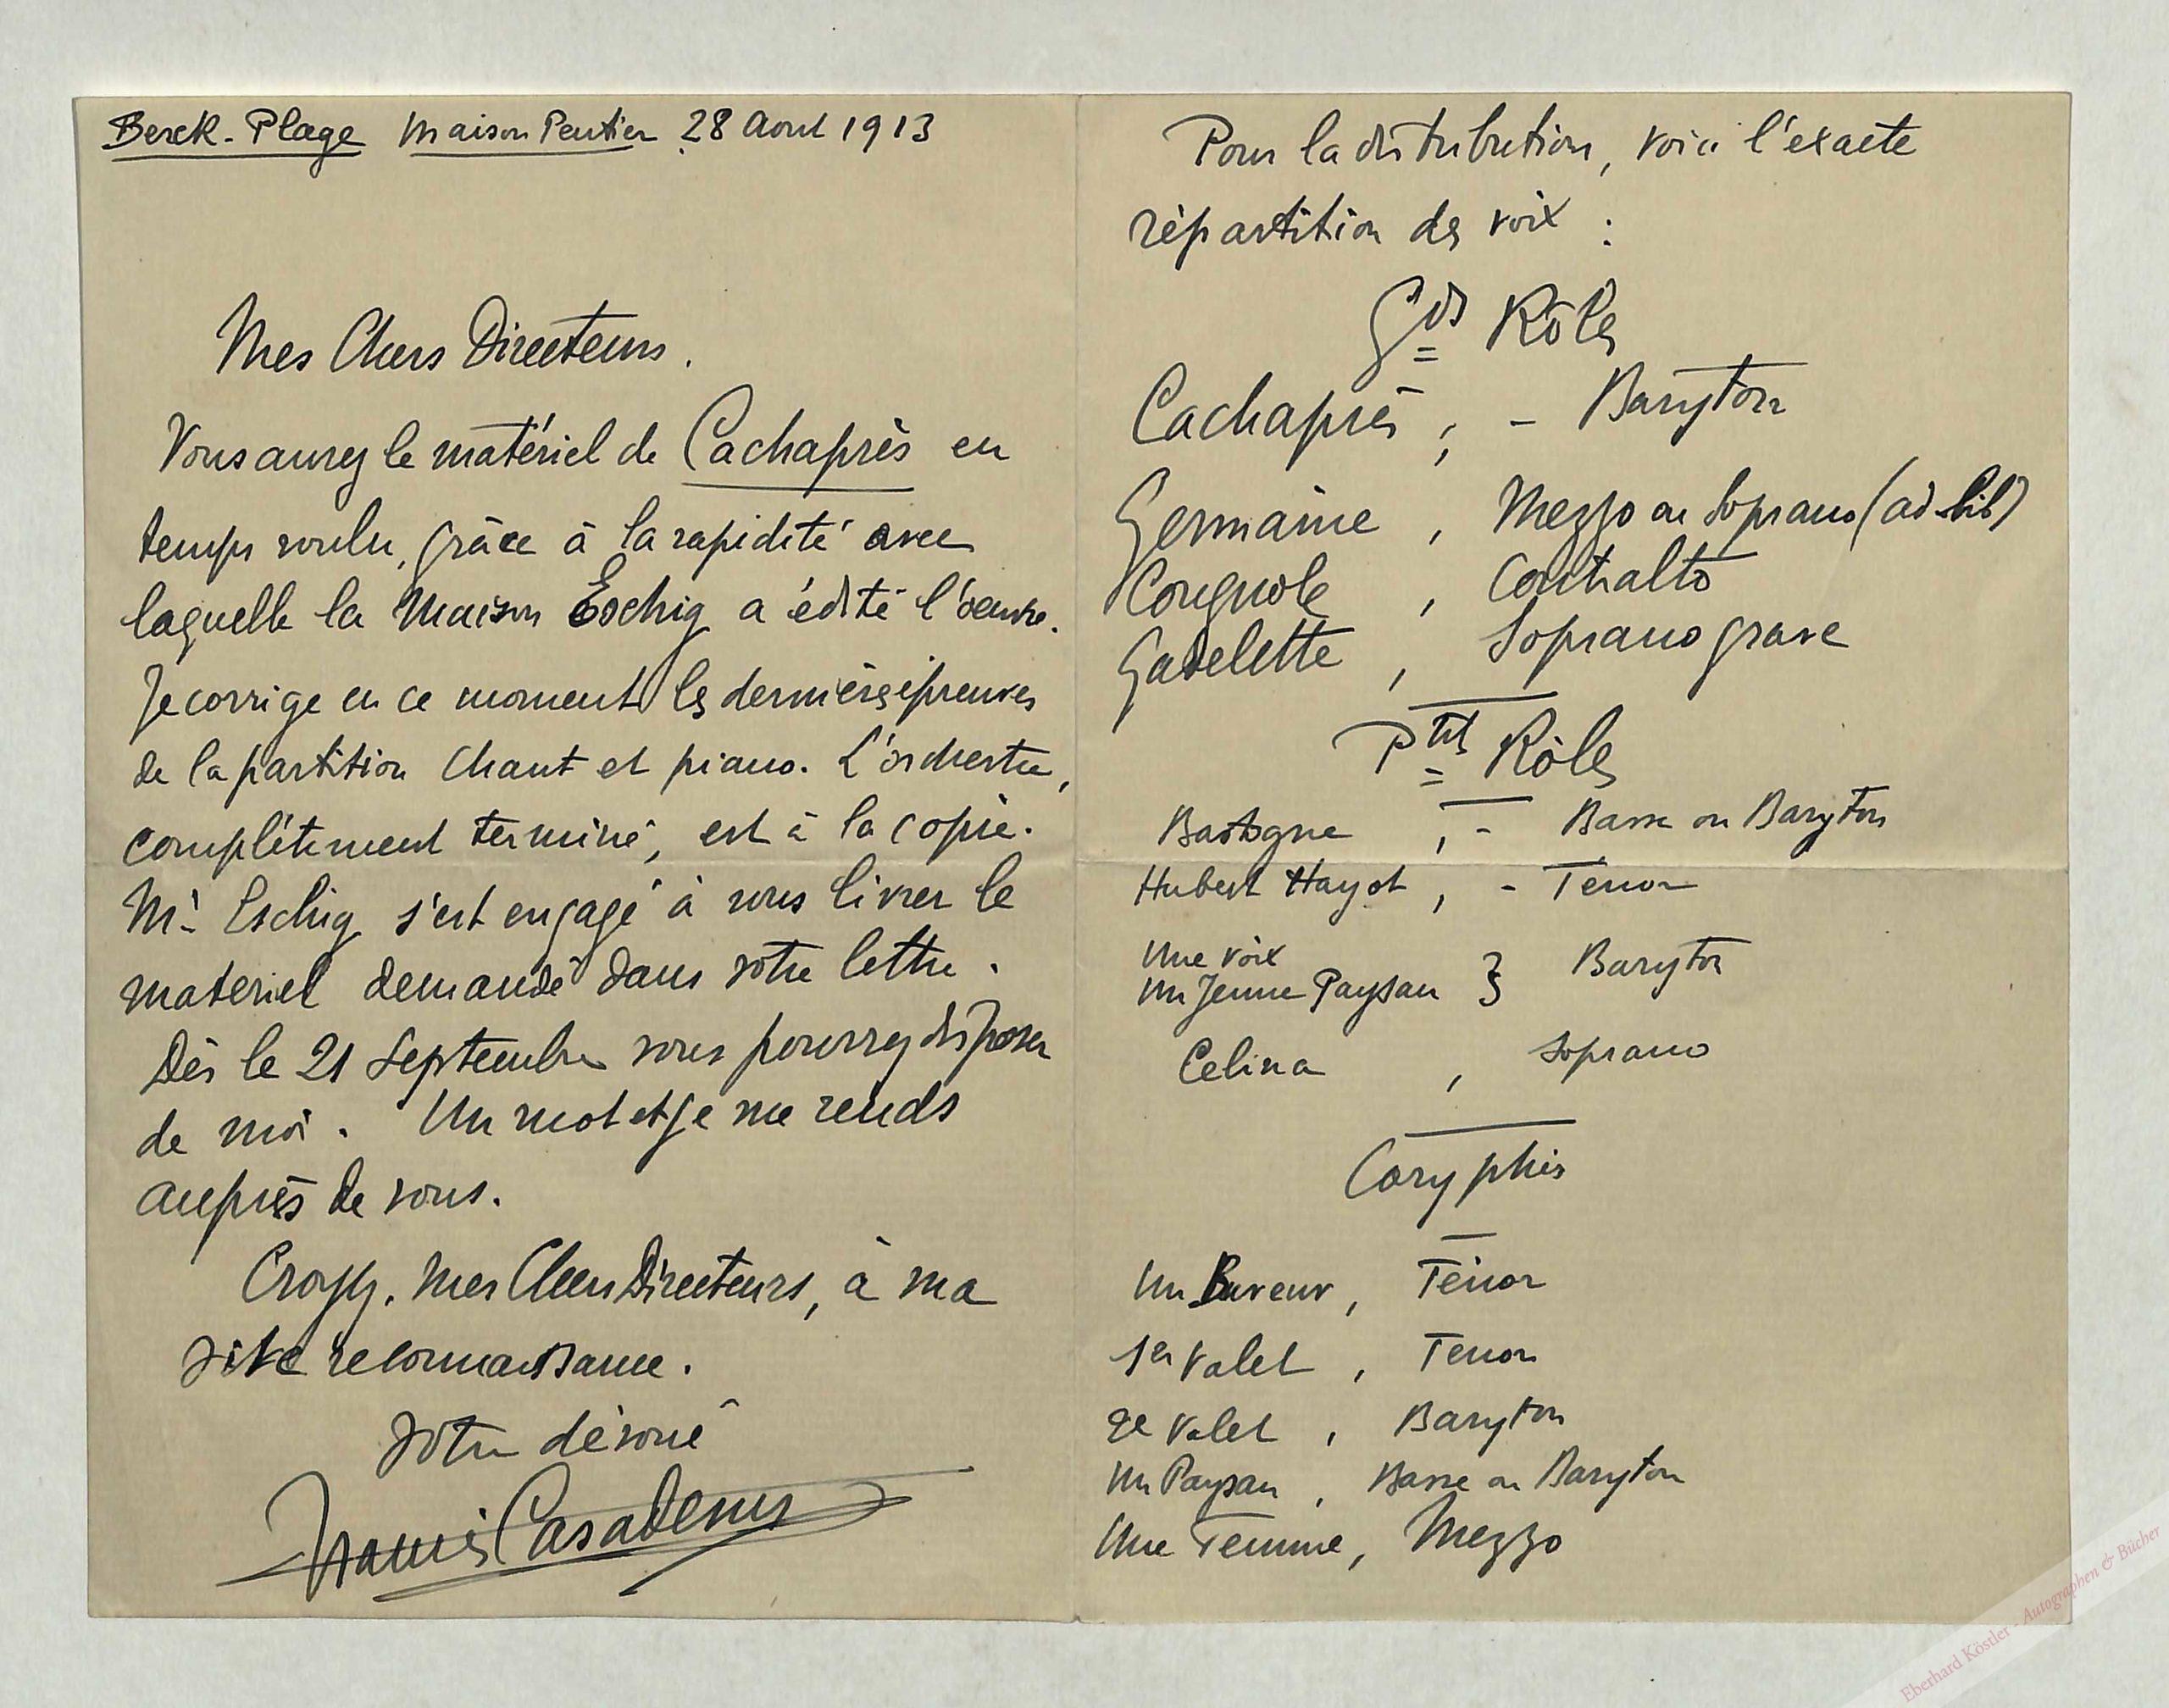 Berck-Plage Maison Pentier 28 Aout 1913
Mes Chers Directeurs.
Vous aurez le matériel de Cachaprès en
temps voulu, grâce à la rapidité avec
laquelle la Maison Eschig a édité l'œuvre.
Je corrige en ce moment les dernières épreuves
de la partition Chant et piano. L'orchestre,
complètement terminé, est à la copie.
Mr Eschig s'est engagé à vous livrer le
matériel demandé dans votre lettre.
Dès le 21 Septembre vous pourrez disposer
de moi. Un mot et je me rends
auprès de vous.
Croyez, mes Chers Directeurs, à ma
vive reconnaissance.
Votre dévoué
Francis Casadesus
Pour la distribution, voici l'exacte
répartition des voix :
Gds Rôles
Cachaprès, - Baryton
Germaine, Mezzo ou Soprano (ad lib)
Cougnole, Contralto
Gadelette, Soprano grave
Ptits Rôles
Bastogne, - Basse ou Baryton
Hubert Hayot, - Ténor
Une voix
Un Jeune Paysan } Baryton
Celina, Soprano
Coryphés
Un Buveur, Ténor
1er Valet, Tenor
2e Valet, Baryton
Un Paysan, Basse ou Baryton
Une Femme, Mezzo
Eberhard Köstler - Autographen & Bücher